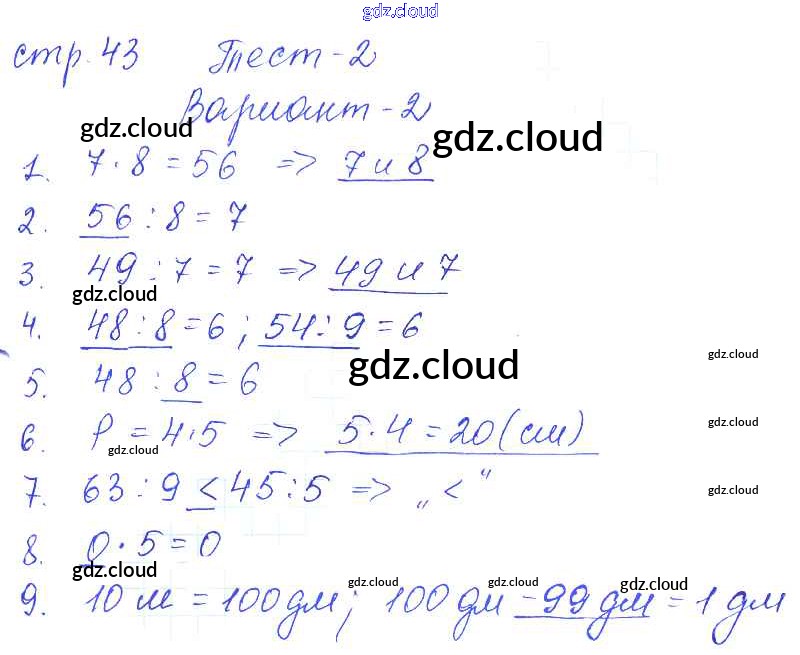 gdz.cloud
стр. 43 Тест-2
Вариант-2
gdz.cloud gdz.cloud
1. 7 · 8 = 56 => 7 и 8
2. 56 : 8 = 7
3. 49 : 7 = 7 => 49 и 7
gdz.cloud
4. 48 : 8 = 6 ; 54 : 9 = 6
gdz.cloud gdz.cloud
5. 48 : 8 = 6
6. P = 4 · 5 => 5 · 4 = 20 (см)
gdz.cloud gdz.cloud
7. 63 : 9 < 45 : 5 => „ < "
gdz.cloud
8. 0 · 5 = 0
gdz.cloud gdz.cloud gdz.cloud gdz.cloud
9. 10 м = 100 дм ; 100 дм - 99 дм = 1 дм